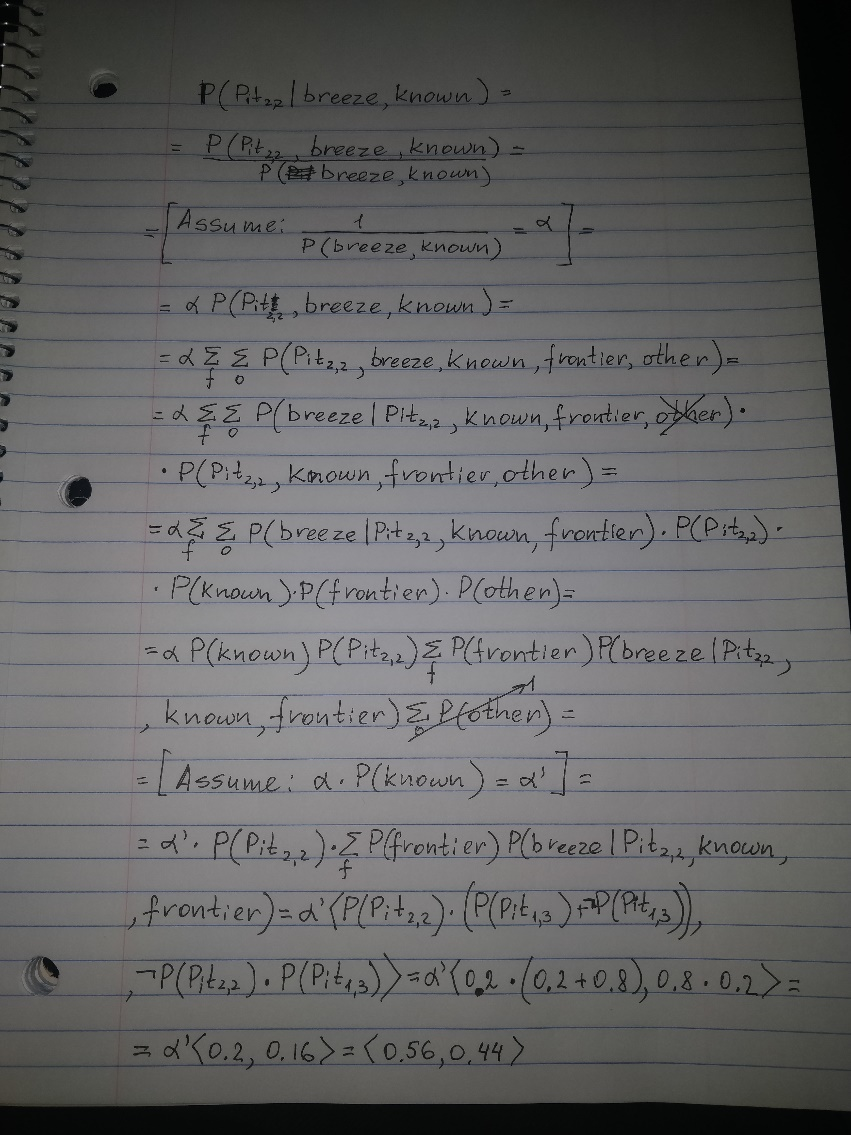 P(Pit₂₂ | breeze, known) =
= P(Pit₂₂, breeze, known) / P(breeze, known) =
= [Assume: 1 / P(breeze, known) = α] =
= α P(Pit₂,₂, breeze, known) =
= α Σ_f Σ_o P(Pit₂,₂, breeze, known, frontier, other) =
= α Σ_f Σ_o P(breeze | Pit₂,₂, known, frontier, other) ·
· P(Pit₂,₂, known, frontier, other) =
= α Σ_f Σ_o P(breeze | Pit₂,₂, known, frontier) · P(Pit₂,₂) ·
· P(known) · P(frontier) · P(other) =
= α P(known) P(Pit₂,₂) Σ_f P(frontier) P(breeze | Pit₂,₂,
, known, frontier) Σ_o P(other) → 1 =
= [Assume: α · P(known) = α'] =
= α' · P(Pit₂,₂) · Σ_f P(frontier) P(breeze | Pit₂,₂, known,
, frontier) = α' ⟨P(Pit₂,₂) · (P(Pit₁,₃) + ¬P(Pit₁,₃)),
, ¬P(Pit₂,₂) · P(Pit₁,₃)⟩ = α' ⟨0.2 · (0.2 + 0.8), 0.8 · 0.2⟩ =
= α' ⟨0.2, 0.16⟩ = ⟨0.56, 0.44⟩